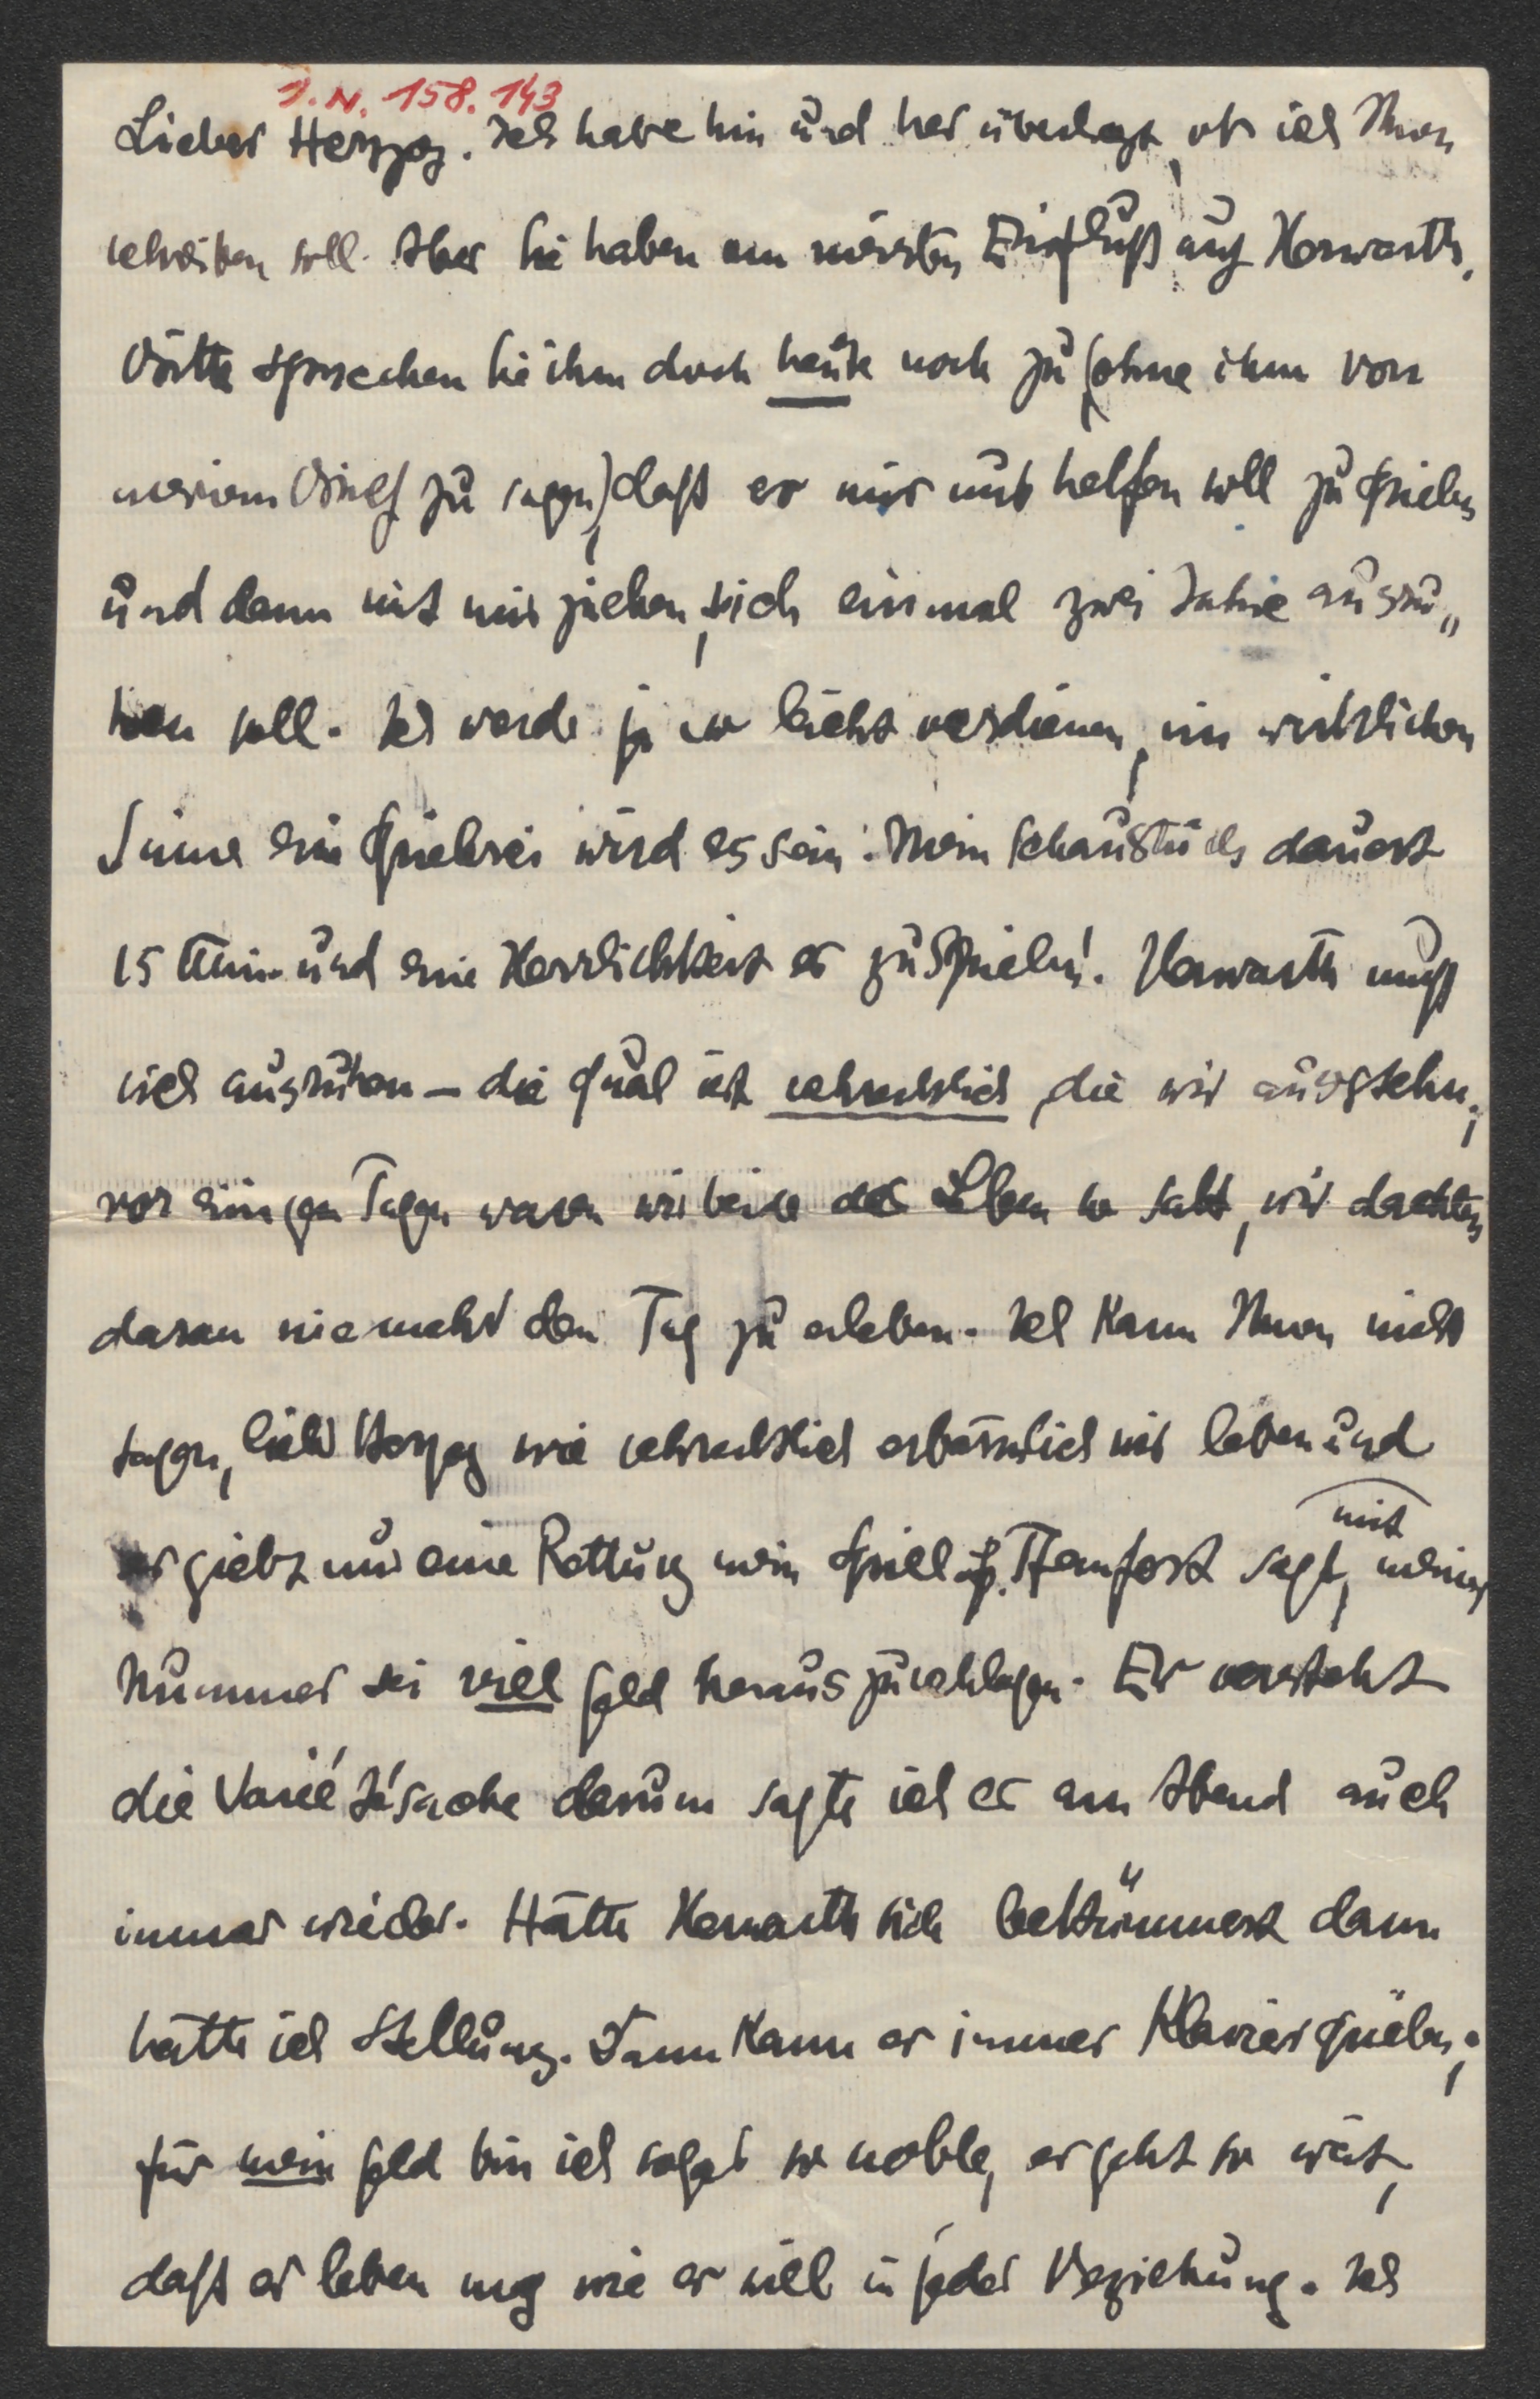 I. N. 158.143
Lieber Herzog. Ich habe hin und her überlegt, ob ich Ihnen
schreiben soll. Aber Sie haben am meisten Einfluß auf Herwarth.
Bitte sprechen Sie ihm doch heute noch zu (ohne ihm von
meinem Brief zu sagen), daß er mir mit helfen soll zu spielen
und dann mit mir ziehen, sich einmal zwei Jahre ausru„
hen soll. Ich werde ja so leicht verdienen, im wirklichen
Sinne eine Spielerei wird es sein. Mein Schaustück dauert
15 Min. und eine Herrlichkeit es zu spielen! Herwarth muß
sich ausruhen – die Qual ist schrecklich, die wir ausstehn;
vor einigen Tagen waren wir beide das Leben so satt, wir dachten
daran nie mehr den Tag zu erleben. Ich kann Ihnen nicht
sagen, lieber Herzog wie schrecklich erbärmlich wir leben und
es giebt nur eine Rettung mein Spiel. Pfemfert sagt, mit meiner
Nummer sei viel Geld herauszuschlagen. Er versteht
die Variétésache darum sagte ich es am Abend auch
immer wieder. Hätte Herwarth sich bekümmert dann
hätte ich Stellung. Dann kann er immer Klavier spielen;
für mein Geld bin ich sogar so noble, es geht so weit,
daß er leben mag wie er will in jeder Beziehung. Ich